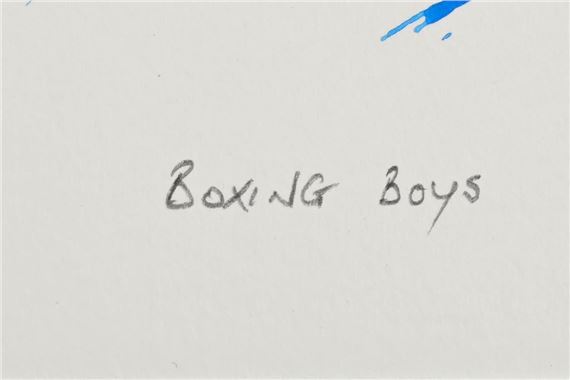 BOXING BOYS